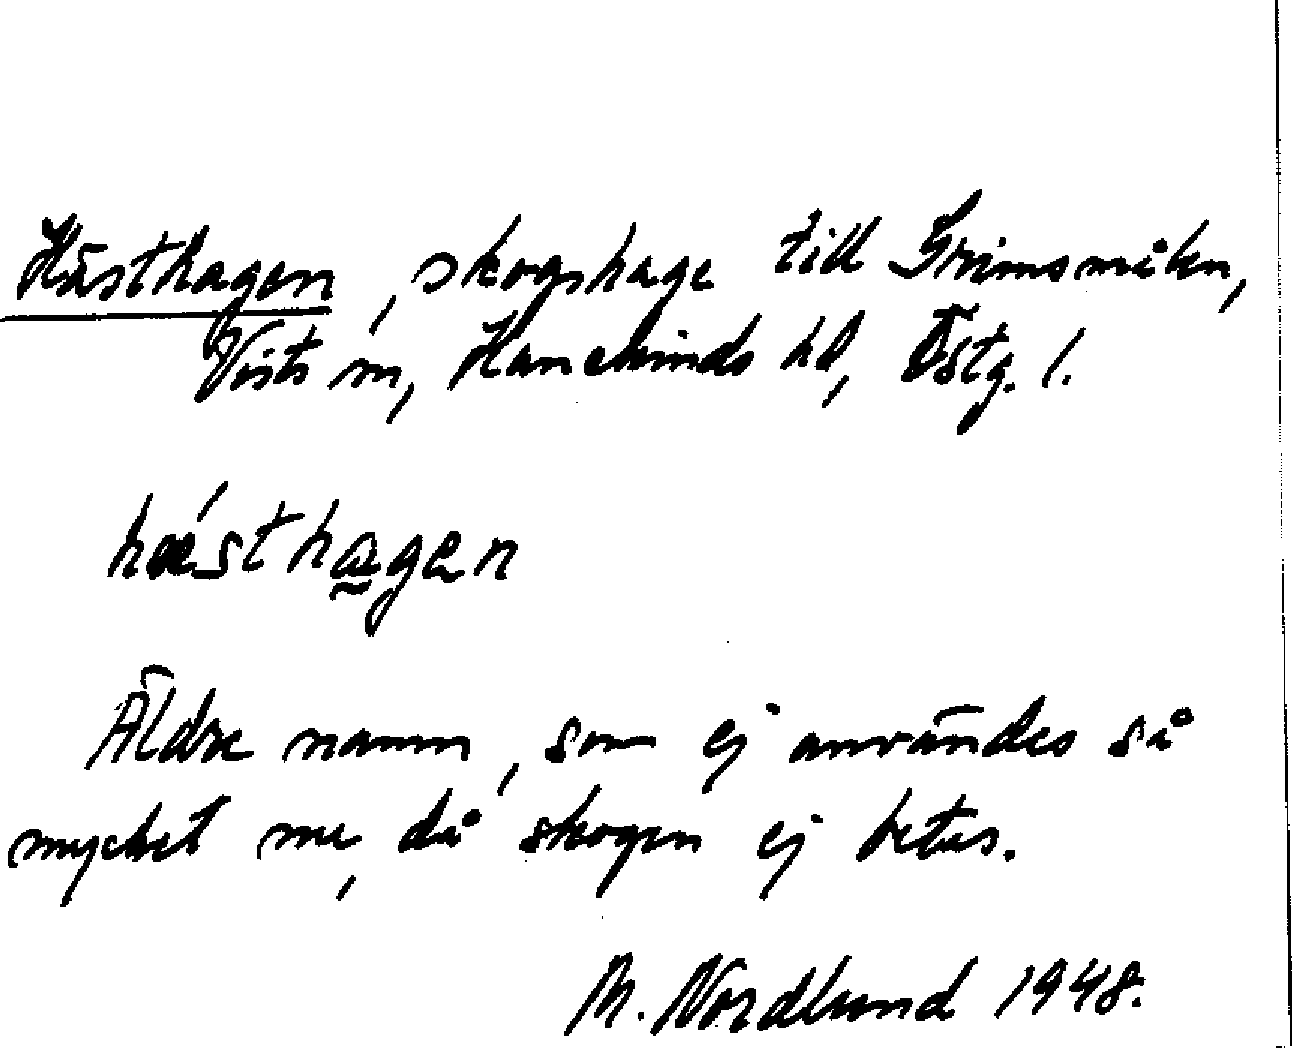 Hästhagen, skogshage till Grimsmåln,
Vists sn, Hanekinds hd, Östg. l.
hǽsthagen
Äldre namn, som ej användes så
mycket nu, då skogen ej betas.
M. Nordlund 1948.